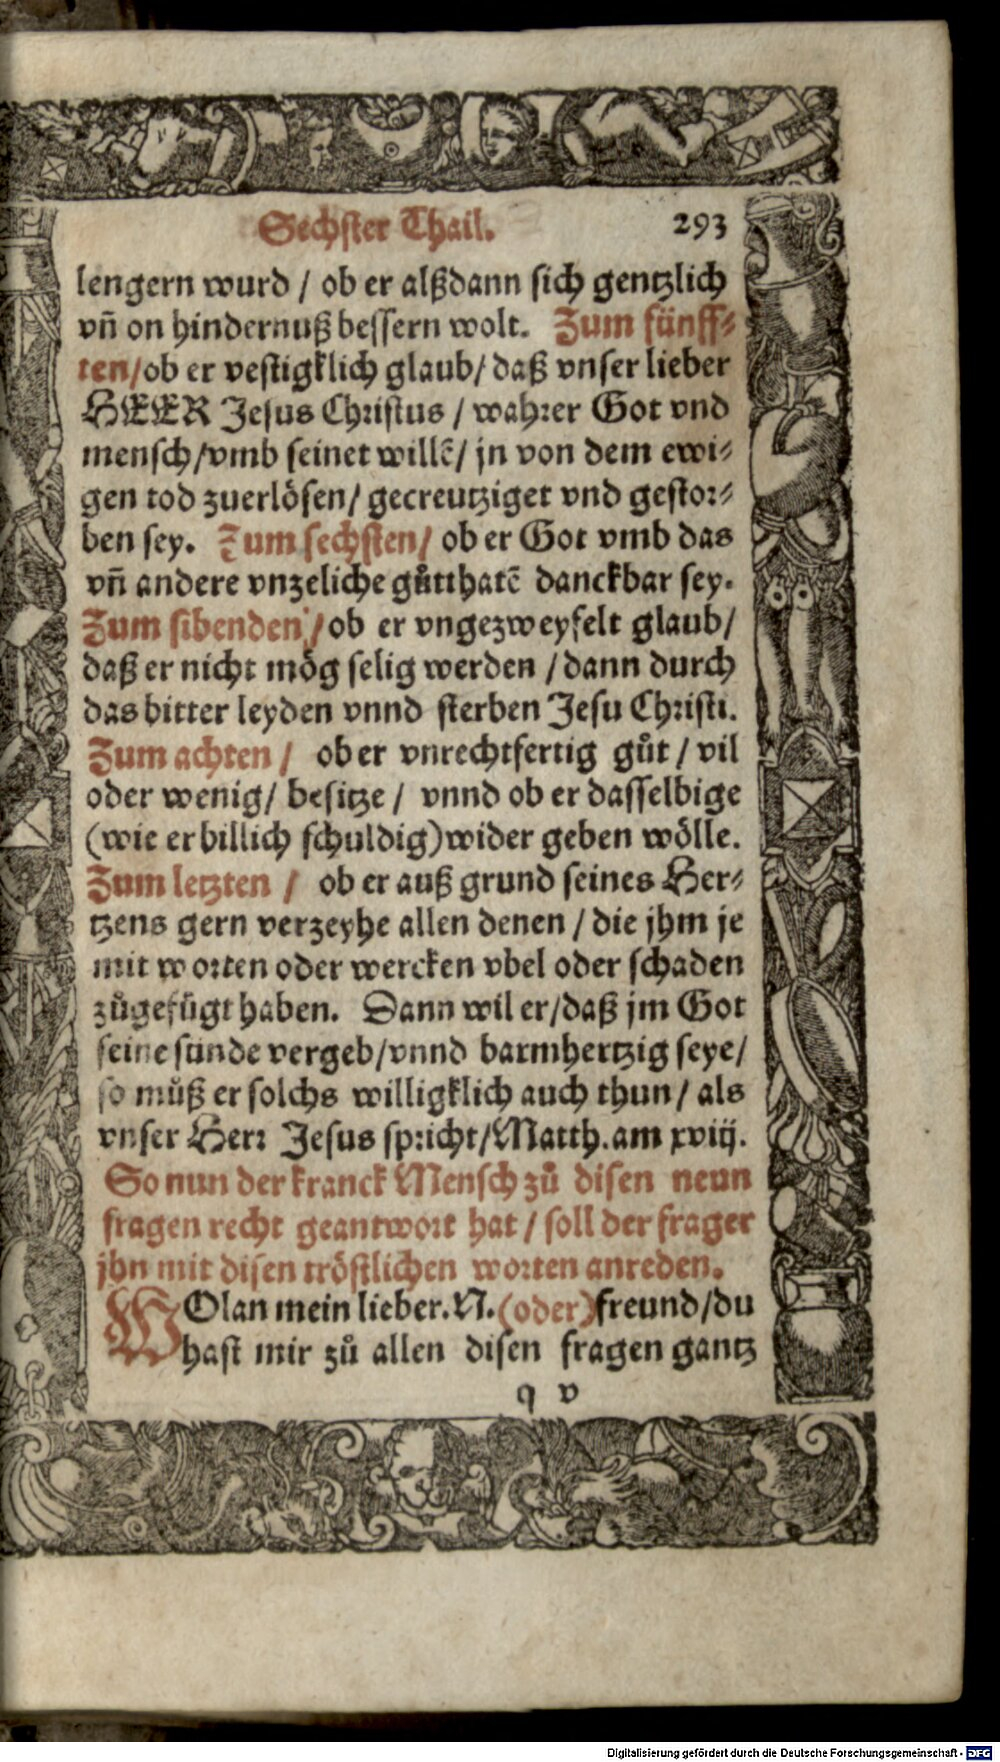 Sechster Thail. 293
lengern wurd / ob er alßdann sich gentzlich
vñ on hindernuß bessern wolt. Zum fünff⸗
ten/ob er vestigklich glaub/ daß vnser lieber
HERR Jesus Christus / wahrer Got vnd
mensch/vmb seinet willẽ/ jn von dem ewi⸗
gen tod zuerlösen/ gecreutziget vnd gestor⸗
ben sey. Zum sechsten/ ob er Got vmb das
vñ andere vnzeliche gůtthatẽ danckbar sey.
Zum sibenden / ob er vngezweyfelt glaub/
daß er nicht mög selig werden / dann durch
das bitter leyden vnnd sterben Jesu Christi.
Zum achten / ob er vnrechtfertig gůt / vil
oder wenig/ besitze / vnnd ob er dasselbige
(wie er billich schuldig) wider geben wölle.
Zum letzten / ob er auß grund seines Her⸗
tzens gern verzeyhe allen denen / die jhm je
mit worten oder wercken vbel oder schaden
zůgefügt haben. Dann wil er/daß jm Got
seine sünde vergeb/vnnd barmhertzig seye/
so můß er solchs willigklich auch thun/ als
vnser Herr Jesus spricht/Matth. am xviij.
So nun der kranck Mensch zů disen neun
fragen recht geantwort hat / soll der frager
jhn mit disen tröstlichen worten anreden.
WOlan mein lieber. N. (oder) freund/du
hast mir zů allen disen fragen gantz
q v
Digitalisierung gefördert durch die Deutsche Forschungsgemeinschaft - DFG